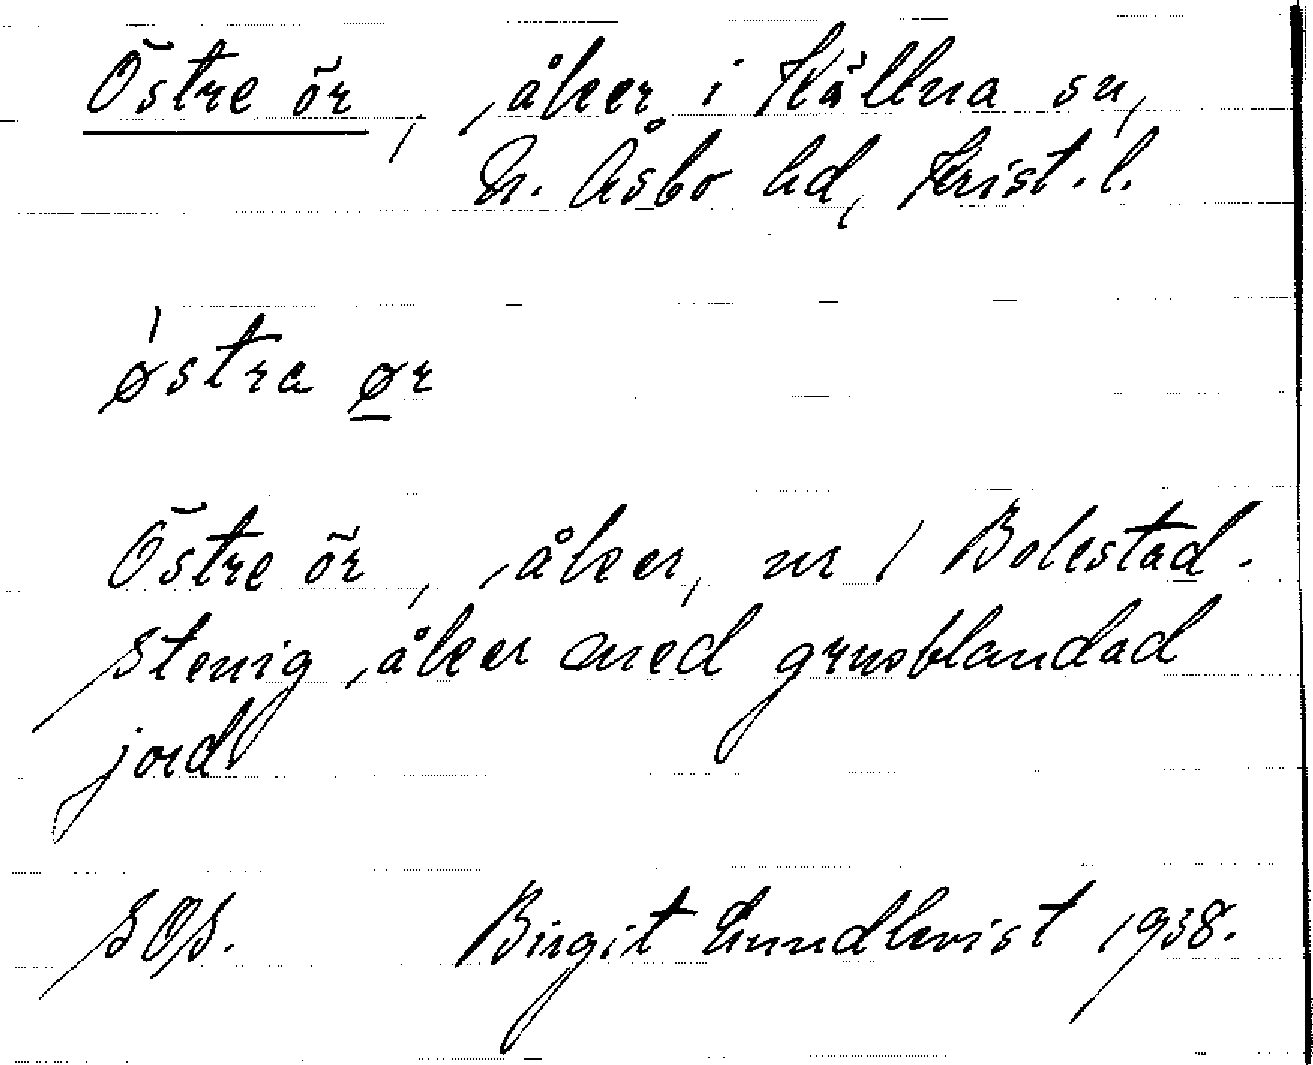 Östre ör, åker i Källna sn,
N. Åsbo hd, Krist. l.
østra ør
Östre ör, åker, nr 1 Bolestad.
Stenig åker med grusblandad
jord
SOS. Birgit Lundkvist 1938.